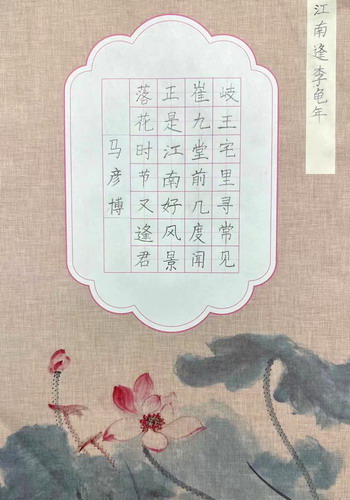 江南逢李龟年
岐王宅里寻常见
崔九堂前几度闻
正是江南好风景
落花时节又逢君
马彦博